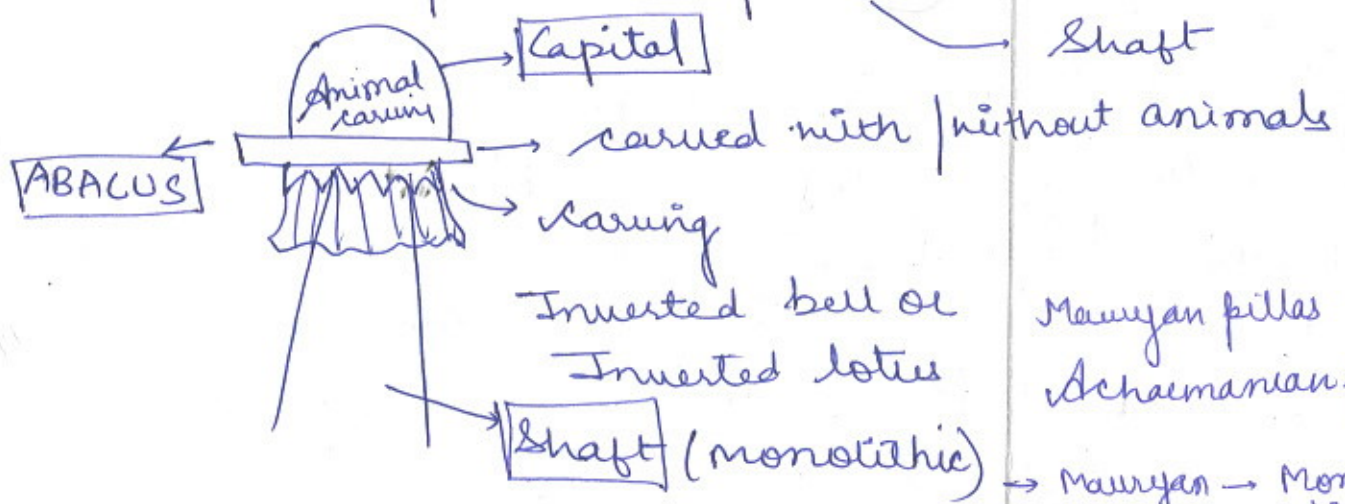 Capital
Shaft
Animal
carving
carved with/without animals
ABACUS
carving
Inverted bell or
Inverted lotus
Mauryan pillas
Achaemanian.
Shaft (monolithic)
→ Mauryan → Mon